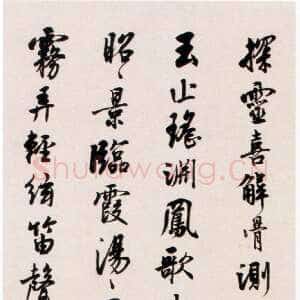 探靈喜解骨測
玉山瑤淵鳳歌
昭〻景臨霞湯〻
霧弄輕弦笛聲